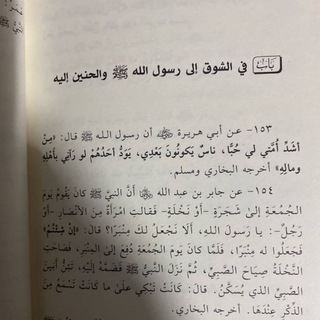 باب في الشوق إلى رسول الله ﷺ والحنين إليه
١٥٣ - عن أبي هريرة أن رسول الله ﷺ قال: «مِنْ
أَشَدِّ أُمَّتِي لِي حُبًّا، نَاسٌ يَكُونُونَ بَعْدِي، يَوَدُّ أَحَدُهُمْ لَو رَآنِي بِأَهْلِهِ
ومالِهِ» أخرجه البخاري ومسلم.
١٥٤ - عن جابر بن عبد الله أَنَّ النبيَّ ﷺ كَانَ يَقُومُ يَومَ
الجُمُعَةِ إلى شَجَرَةٍ -أو نَخْلَةٍ- فَقالَتِ امْرَأَةٌ مِنَ الأَنْصَارِ -أو
رَجُلٌ-: يا رَسولَ اللهِ، أَلَا نَجْعَلُ لَكَ مِنْبَرًا؟ قالَ: «إِنْ شِئْتُمْ»
فَجَعَلُوا له مِنْبَرًا، فَلَمَّا كانَ يَوْمُ الجُمُعَةِ دُفِعَ إلى المِنْبَرِ، فَصَاحَتِ
النَّخْلَةُ صِيَاحَ الصَّبِيِّ، ثُمَّ نَزَلَ النَّبِيُّ ﷺ فَضَمَّهُ إِلَيْهِ، تَئِنُّ أَنِينَ
الصَّبِيِّ الذي يُسَكَّنُ. قالَ: كانَتْ تَبْكِي علَى ما كانَتْ تَسْمَعُ مِنَ
الذِّكْرِ عِنْدَهَا. أخرجه البخاري.